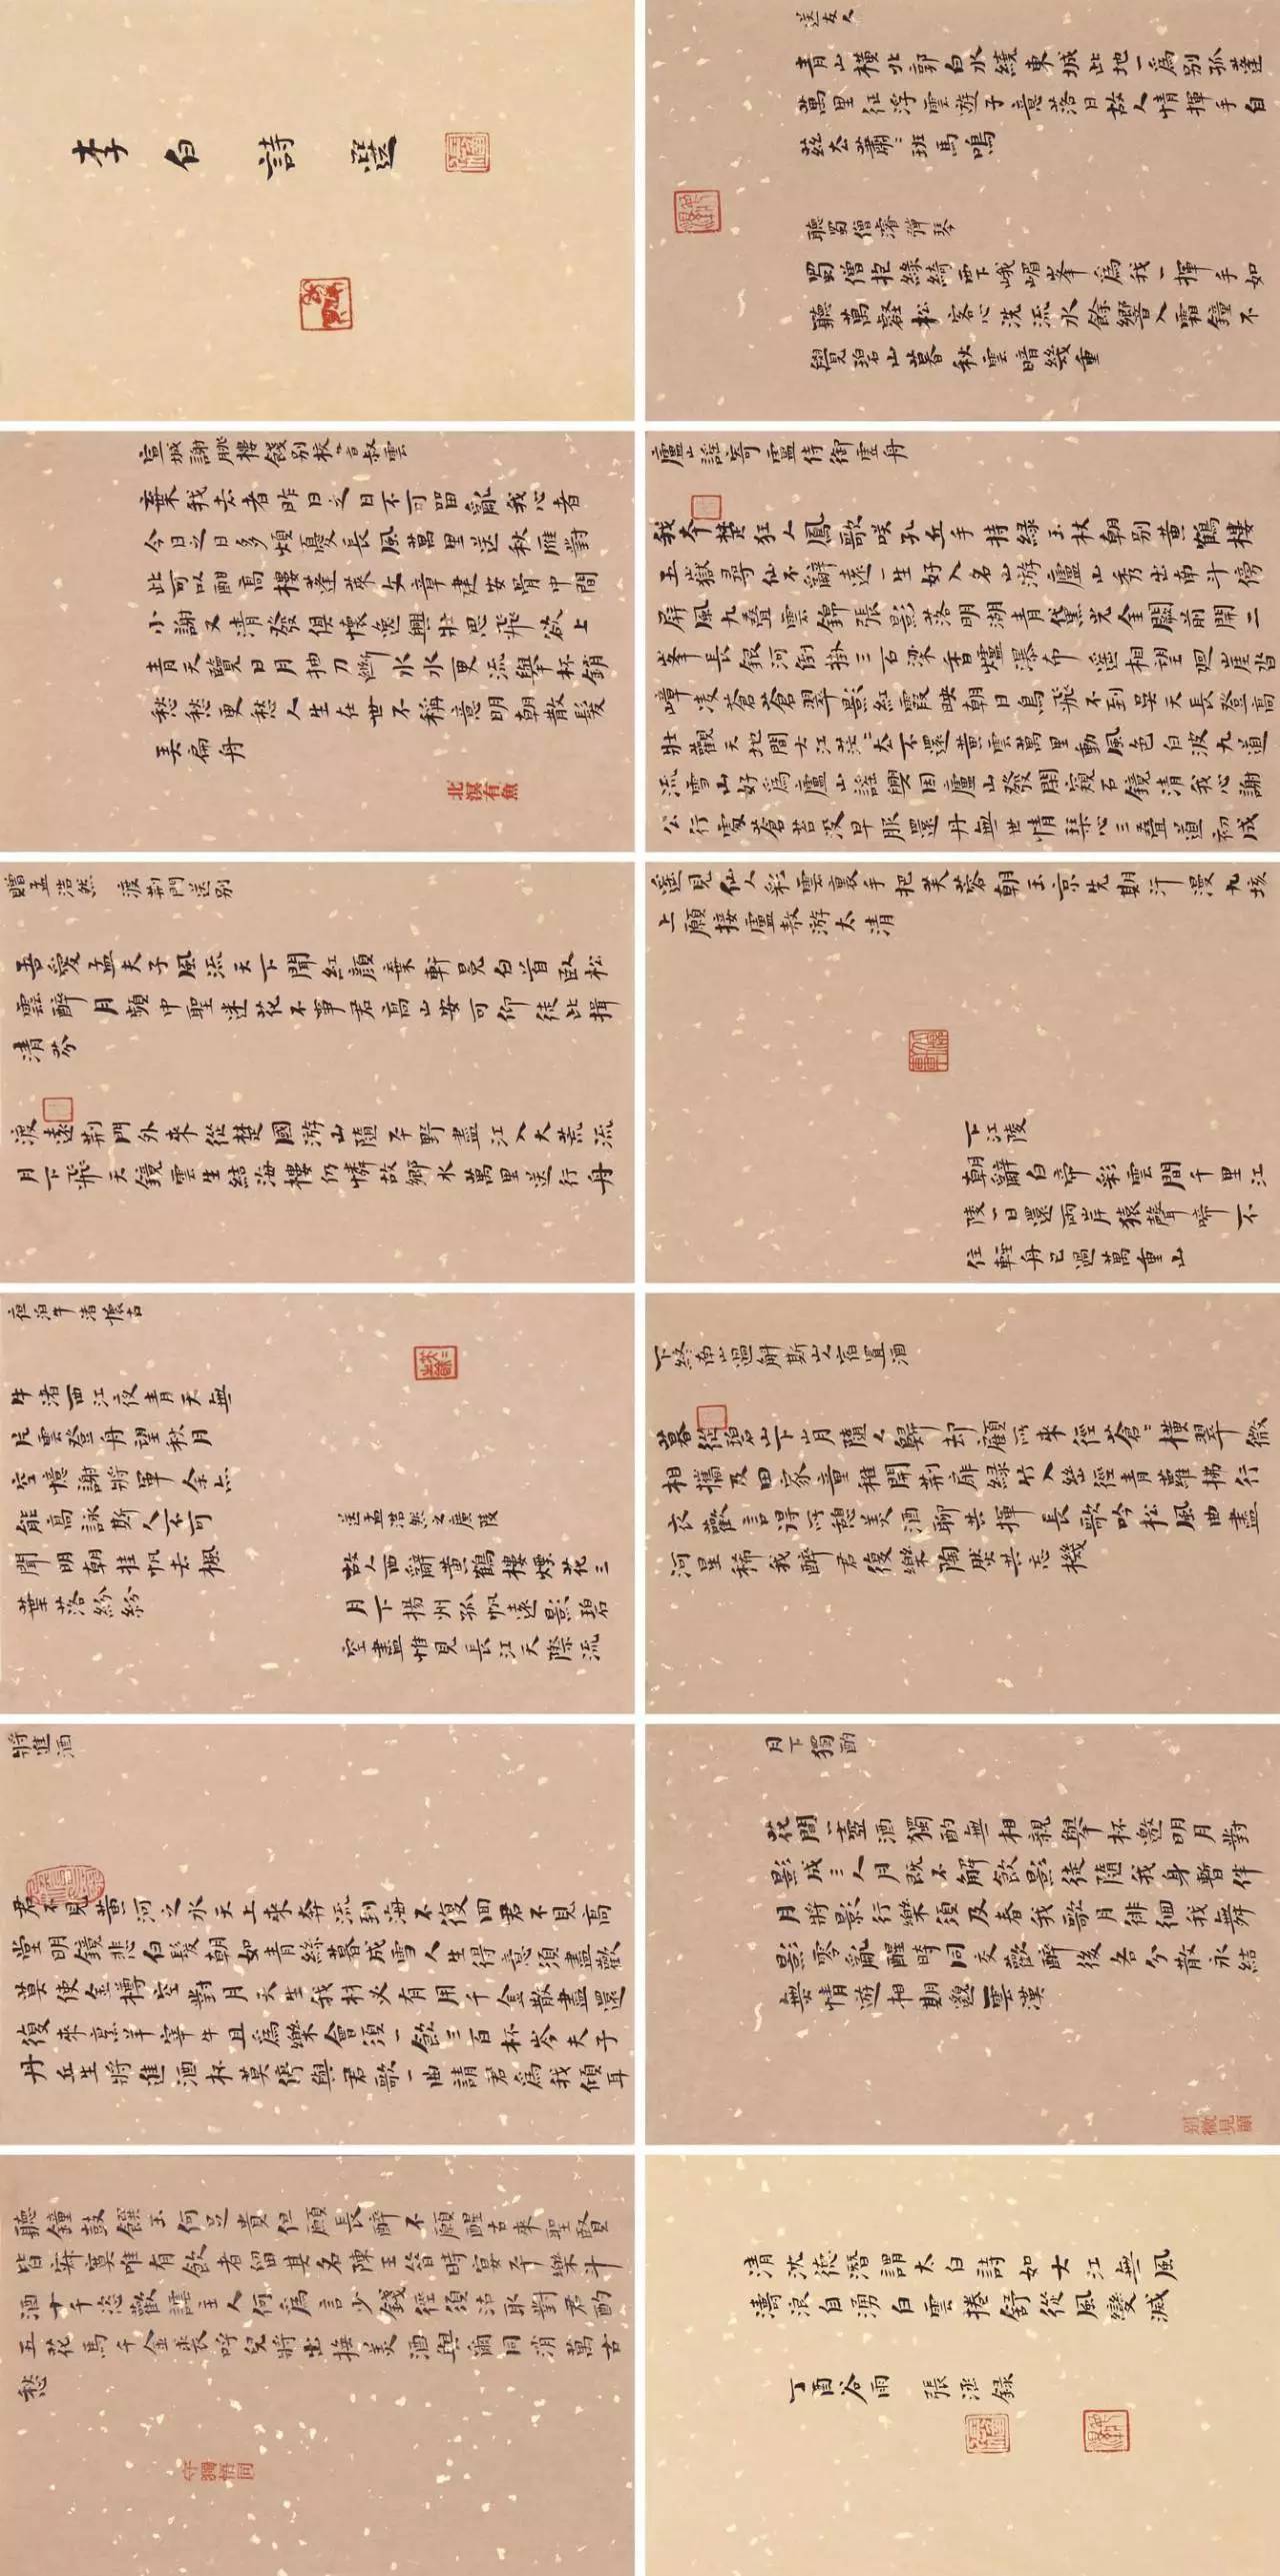 李白詩選
宣城謝朓樓餞別校書叔雲
棄我去者昨日之日不可留亂我心者
今日之日多煩憂長風萬里送秋雁對
此可以酣高樓蓬萊文章建安骨中間
小謝又清發俱懷逸興壯思飛欲上
青天覽日月抽刀斷水水更流舉杯銷
愁愁更愁人生在世不稱意明朝散髮
弄扁舟
北溟有魚
贈孟浩然 渡荊門送別
吾愛孟夫子風流天下聞紅顏棄軒冕白首臥松
雲醉月頻中聖迷花不事君高山安可仰徒此揖
清芬
渡遠荊門外來從楚國游山隨平野盡江入大荒流
月下飛天鏡雲生結海樓仍憐故鄉水萬里送行舟
夜泊牛渚懷古
牛渚西江夜青天無
片雲登舟望秋月
空憶謝將軍余亦
能高詠斯人不可
聞明朝挂帆去楓
葉落紛紛
送孟浩然之廣陵
故人西辭黃鶴樓煙花三
月下揚州孤帆遠影碧
空盡惟見長江天際流
將進酒
君不見黃河之水天上來奔流到海不復回君不見高
堂明鏡悲白髮朝如青絲暮成雪人生得意須盡歡
莫使金樽空對月天生我材必有用千金散盡還
復來烹羊宰牛且為樂會須一飲三百杯岑夫子
丹丘生將進酒杯莫停與君歌一曲請君為我傾耳
聽鐘鼓饌玉何足貴但願長醉不願醒古來聖賢
皆寂寞唯有飲者留其名陳王昔時宴平樂斗
酒十千恣歡謔主人何為言少錢徑須沽取對君酌
五花馬千金裘呼兒將出換美酒與爾同消萬古
愁
送友人
青山橫北郭白水繞東城此地一為別孤蓬
萬里征浮雲遊子意落日故人情揮手自
茲去蕭〻班馬鳴
聽蜀僧濬彈琴
蜀僧抱綠綺西下峨嵋峯為我一揮手如
聽萬壑松客心洗流水餘響入霜鐘不
覺碧山暮秋雲暗幾重
廬山謠寄盧侍御虛舟
我本楚狂人鳳歌咲孔丘手持綠玉杖朝別黃鶴樓
五嶽尋仙不辭遠一生好入名山游廬山秀出南斗傍
屏風九疊雲錦張影落明湖青黛光金闕前開二
峯長銀河倒掛三石梁香爐瀑布遙相望迴崖沓
嶂凌蒼蒼翠影紅霞映朝日鳥飛不到吳天長登高
壯觀天地間大江茫〻去不還黃雲萬里動風色白波九道
流雪山好為廬山謠興因廬山發閑窺石鏡清我心謝
公行處蒼苔沒早服還丹無世情琴心三疊道初成
遙見仙人彩雲裏手把芙蓉朝玉京先期汗漫九垓
上願接盧敖游太清
下江陵
朝辭白帝彩雲間千里江
陵一日還兩岸猿聲啼不
住輕舟已過萬重山
下終南山過斛斯山人宿置酒
暮從碧山下山月隨人歸却顧所來徑蒼〻橫翠微
相攜及田家童稚開荊扉綠竹入幽徑青蘿拂行
衣歡言得所憩美酒聊共揮長歌吟松風曲盡
河星稀我醉君復樂陶然共忘機
月下獨酌
花間一壺酒獨酌無相親舉杯邀明月對
影成三人月既不解飲影徒隨我身暫伴
月將影行樂須及春我歌月徘徊我舞
影零亂醒時同交歡醉後各分散永結
無情遊相期邈雲漢
清沈德潛謂太白詩如大江無風
濤浪自湧白雲捲舒從風變滅
丁酉谷雨 張湮錄